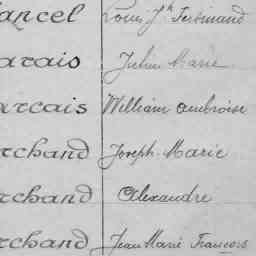 ancel Louis Jh Ferdinand
arais Julien Marie
arcais William Ambroise
rchand Joseph-Marie
rchand Alexandre
rchand Jean Marie François